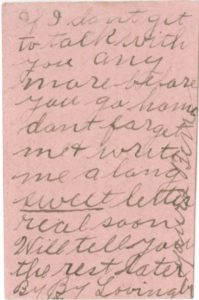 If I don't get
to talk with
you any
more before
you go home
dont forget
me & write
me a long
sweet letter
real soon
Will tell you
the rest later
By By Lovingly